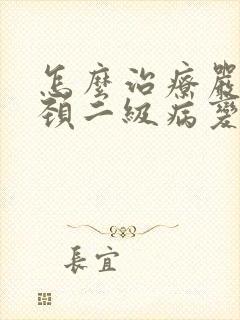 怎麼治療嚴
頸二級病變
長宜